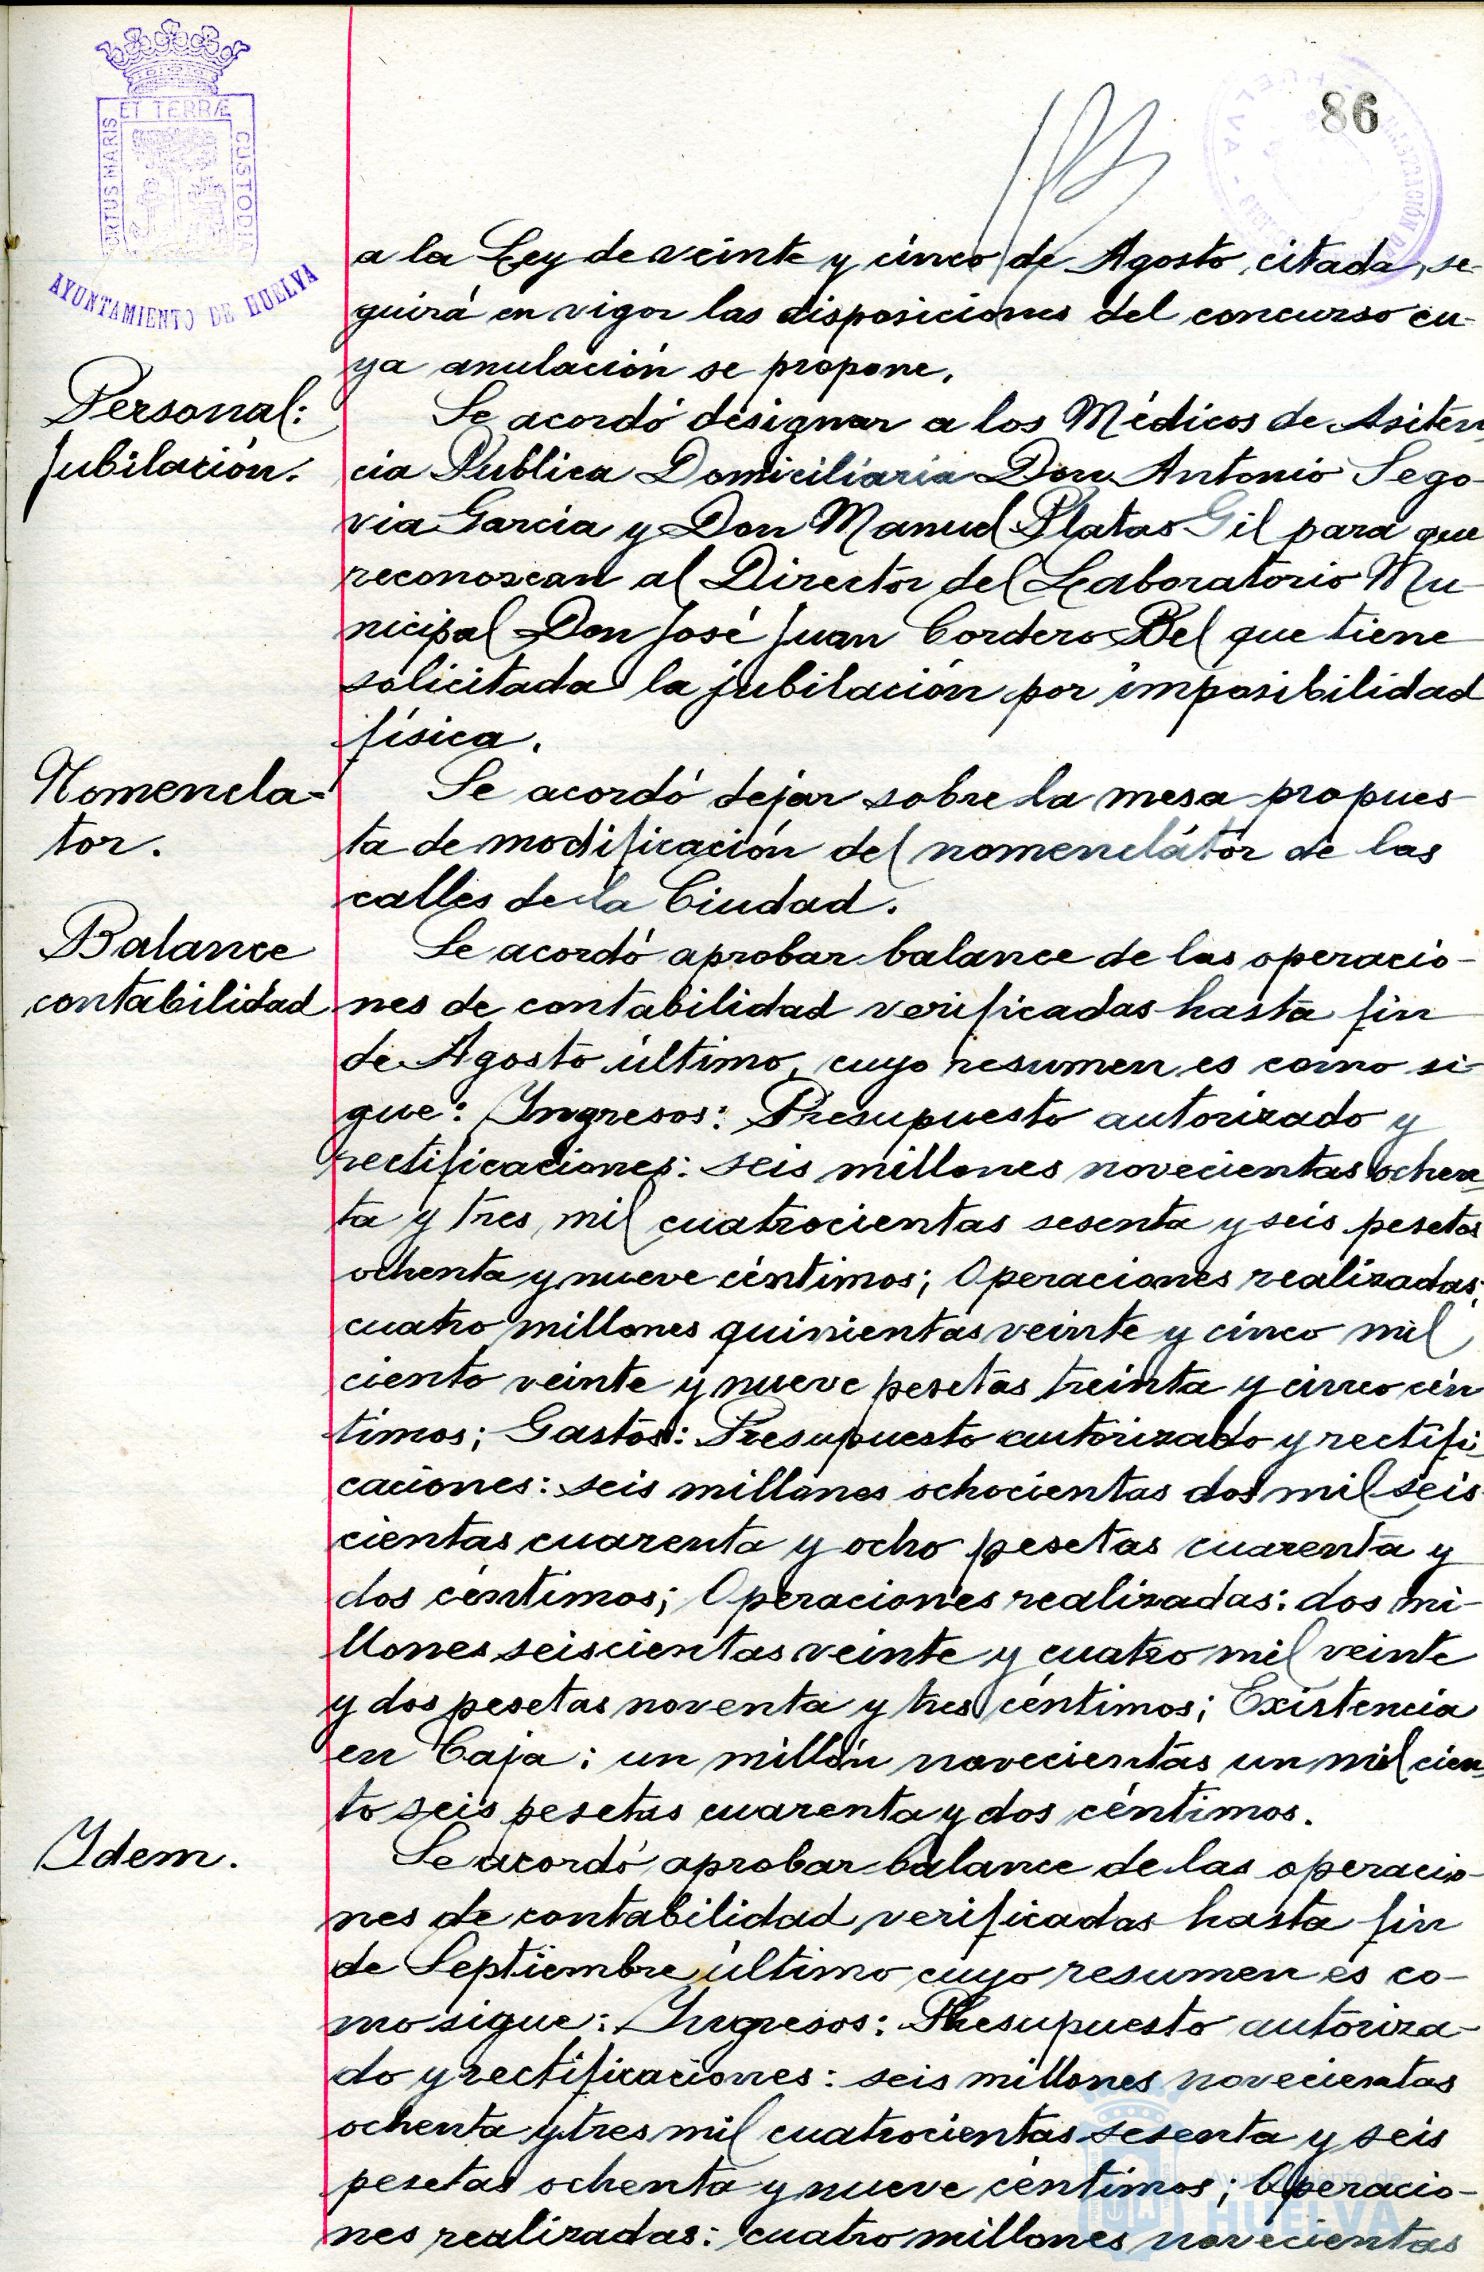 86
PORTUS MARIS ET TERRÆ CUSTODIA
AYUNTAMIENTO DE HUELVA
a la Ley de veinte y cinco de Agosto, citada, se-
guirá en vigor las disposiciones del concurso cu-
ya anulación se propone.
Personal:
Jubilación.
Se acordó designar a los Médicos de Asiten
cia Publica Domiciliaria Don Antonio Sego-
via Garcia y Don Manuel Platas Gil para que
reconozcan al Director del Laboratorio Mu-
nicipal Don José Juan Cordero Bel que tiene
solicitada la jubilación por imposibilidad
física.
Nomencla-
tor.
Se acordó dejar sobre la mesa propues-
ta de modificación del nomenclátor de las
calles de la Ciudad.
Balance
contabilidad
Se acordó aprobar balance de las operacio-
nes de contabilidad verificadas hasta fin
de Agosto último, cuyo resumen es como si-
gue: Ingresos: Presupuesto autorizado y
rectificaciones: seis millones novecientas ochen
ta y tres mil cuatrocientas sesenta y seis pesetas
ochenta y nueve céntimos; Operaciones realizadas:
cuatro millones quinientas veinte y cinco mil
ciento veinte y nueve pesetas treinta y cinco cén
timos; Gastos: Presupuesto autorizado y rectifi
caciones: seis millones ochocientas dos mil seis
cientas cuarenta y ocho pesetas cuarenta y
dos céntimos; Operaciones realizadas: dos mi-
llones seiscientas veinte y cuatro mil veinte
y dos pesetas noventa y tres céntimos; Existencia
en Caja: un millón novecientas un mil cien
to seis pesetas cuarenta y dos céntimos.
Idem.
Se acordó aprobar balance de las operacio-
nes de contabilidad verificadas hasta fin
de Septiembre último cuyo resumen es co-
mo sigue: Ingresos: Presupuesto autoriza-
do y rectificaciones: seis millones novecientas
ochenta y tres mil cuatrocientas sesenta y seis
pesetas ochenta y nueve céntimos; Operacio-
nes realizadas: cuatro millones novecientas
Ayuntamiento de
HUELVA